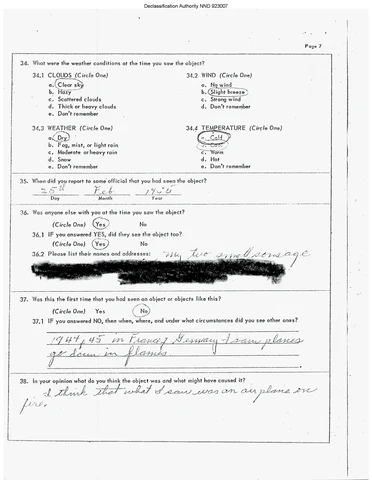 Declassification Authority NND 923007
Page 7
34. What were the weather conditions at the time you saw the object?
34.1 CLOUDS (Circle One) 34.2 WIND (Circle One)
a. Clear sky a. No wind
b. Hazy b. Slight breeze
c. Scattered clouds c. Strong wind
d. Thick or heavy clouds d. Don't remember
e. Don't remember
34.3 WEATHER (Circle One) 34.4 TEMPERATURE (Circle One)
a. Dry a. Cold
b. Fog, mist, or light rain b. Cool
c. Moderate or heavy rain c. Warm
d. Snow d. Hot
e. Don't remember e. Don't remember
35. When did you report to some official that you had seen the object?
25th Feb
Day Month Year
36. Was anyone else with you at the time you saw the object?
(Circle One) Yes No
36.1 IF you answered YES, did they see the object too?
(Circle One) Yes No
36.2 Please list their names and addresses: my two small sons age
37. Was this the first time that you had seen an object or objects like this?
(Circle One) Yes No
37.1 IF you answered NO, then when, where, and under what circumstances did you see other ones?
1944, 45 in France, Germany I saw planes
go down in flames
38. In your opinion what do you think the object was and what might have caused it?
I think that what I saw was an airplane on
fire.